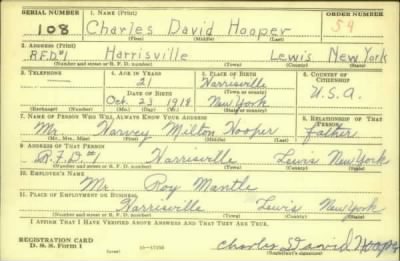 SERIAL NUMBER 1. NAME (Print) ORDER NUMBER
108 Charles David Hooper 54
(First) (Middle) (Last)
2. ADDRESS (Print)
R.F.D. #1 Harrisville Lewis New York
(Number and street or R. F. D. number) (Town) (County) (State)
3. TELEPHONE 4. AGE IN YEARS 5. PLACE OF BIRTH 6. COUNTRY OF CITIZENSHIP
21 Harrisville
DATE OF BIRTH (Town or county)
Oct. 23 1918 New York U.S.A.
(Exchange) (Number) (Mo.) (Day) (Yr.) (State or country)
7. NAME OF PERSON WHO WILL ALWAYS KNOW YOUR ADDRESS 8. RELATIONSHIP OF THAT PERSON
Mr. Harvey Milton Hooper Father
(Mr., Mrs., Miss) (First) (Middle) (Last)
9. ADDRESS OF THAT PERSON
R.F.D. #1 Harrisville Lewis New York
(Number and street or R. F. D. number) (Town) (County) (State)
10. EMPLOYER'S NAME
Mr. Roy Mantle
11. PLACE OF EMPLOYMENT OR BUSINESS
Harrisville Lewis New York
(Number and street or R. F. D. number) (Town) (County) (State)
I AFFIRM THAT I HAVE VERIFIED ABOVE ANSWERS AND THAT THEY ARE TRUE.
REGISTRATION CARD
D. S. S. Form 1 Charles David Hooper
(Registrant's signature)